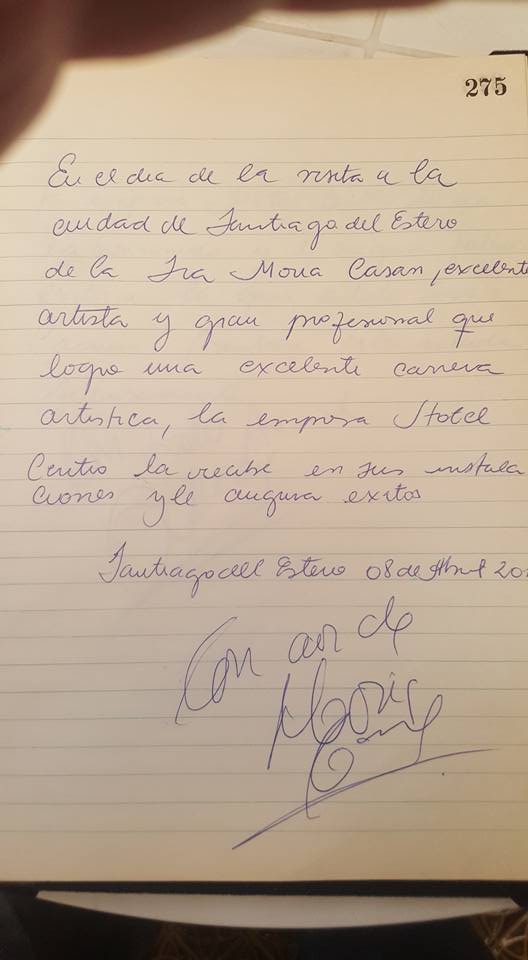 275
En el dia de la visita a la
ciudad de Santiago del Estero
de la Sra Moria Casan, excelente
artista y gran profesional que
logro una excelente carrera
artistica, la empresa Hotel
Centro la recibe en sus instala
ciones y le augura exitos
Santiago del Estero 08 de Abril 20
Con amor de
Moria
Casan